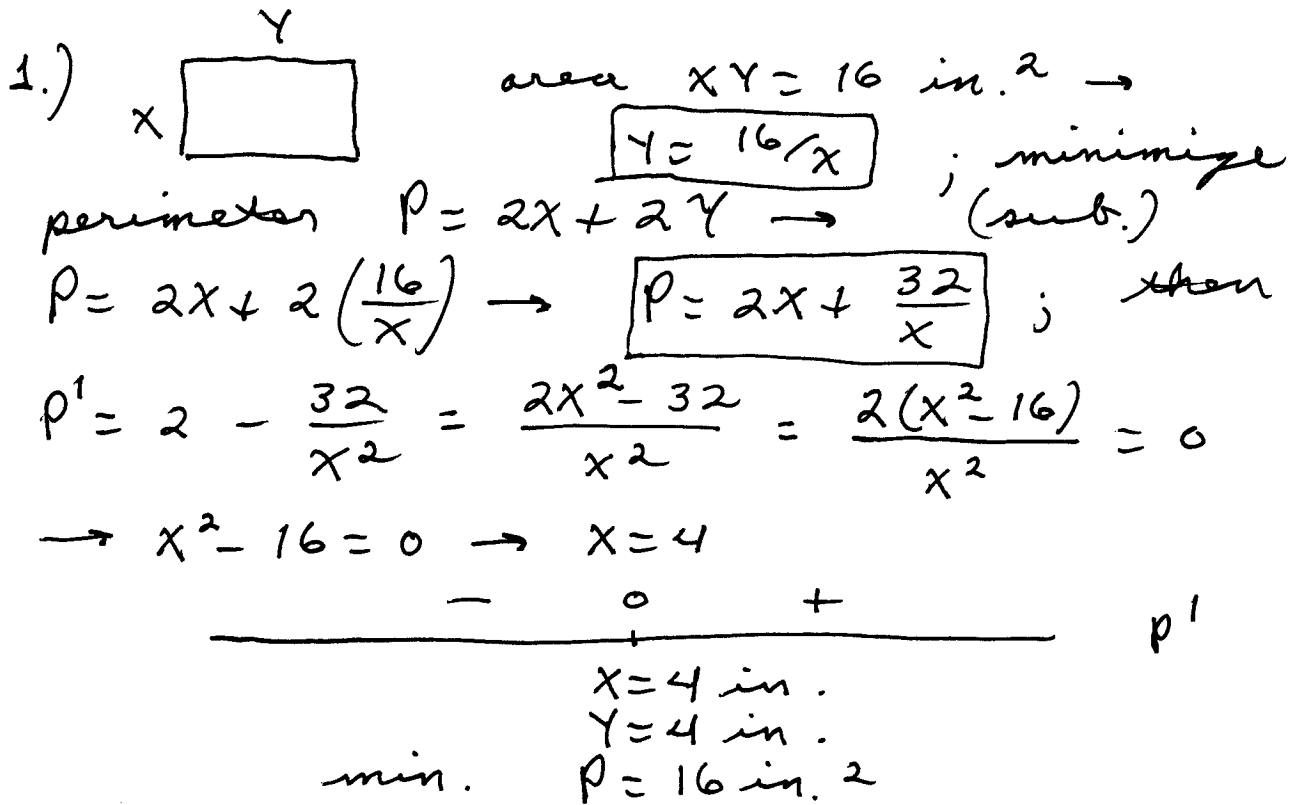 1.) Y
X area XY = 16 in.² →
Y = 16/X ; minimize
perimeter P = 2X + 2Y → (sub.)
P = 2X + 2(16/X) → P = 2X + 32/X ; then
P' = 2 - 32/X² = 2X² - 32/X² = 2(X² - 16)/X² = 0
→ X² - 16 = 0 → X = 4
- 0 + P'
X = 4 in.
Y = 4 in.
min. P = 16 in.²